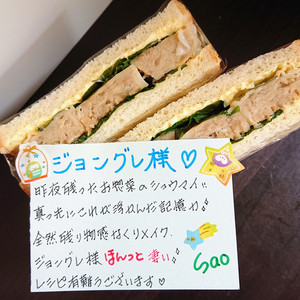 ジョングレ様♡
昨夜残ったお惣菜のシュウマイ
真っ先にこれが浮んだ記憶力
全然残り物感なくリメイク.
ジョングレ様ほんっと凄い
レシピ有難うございます♡
Sao